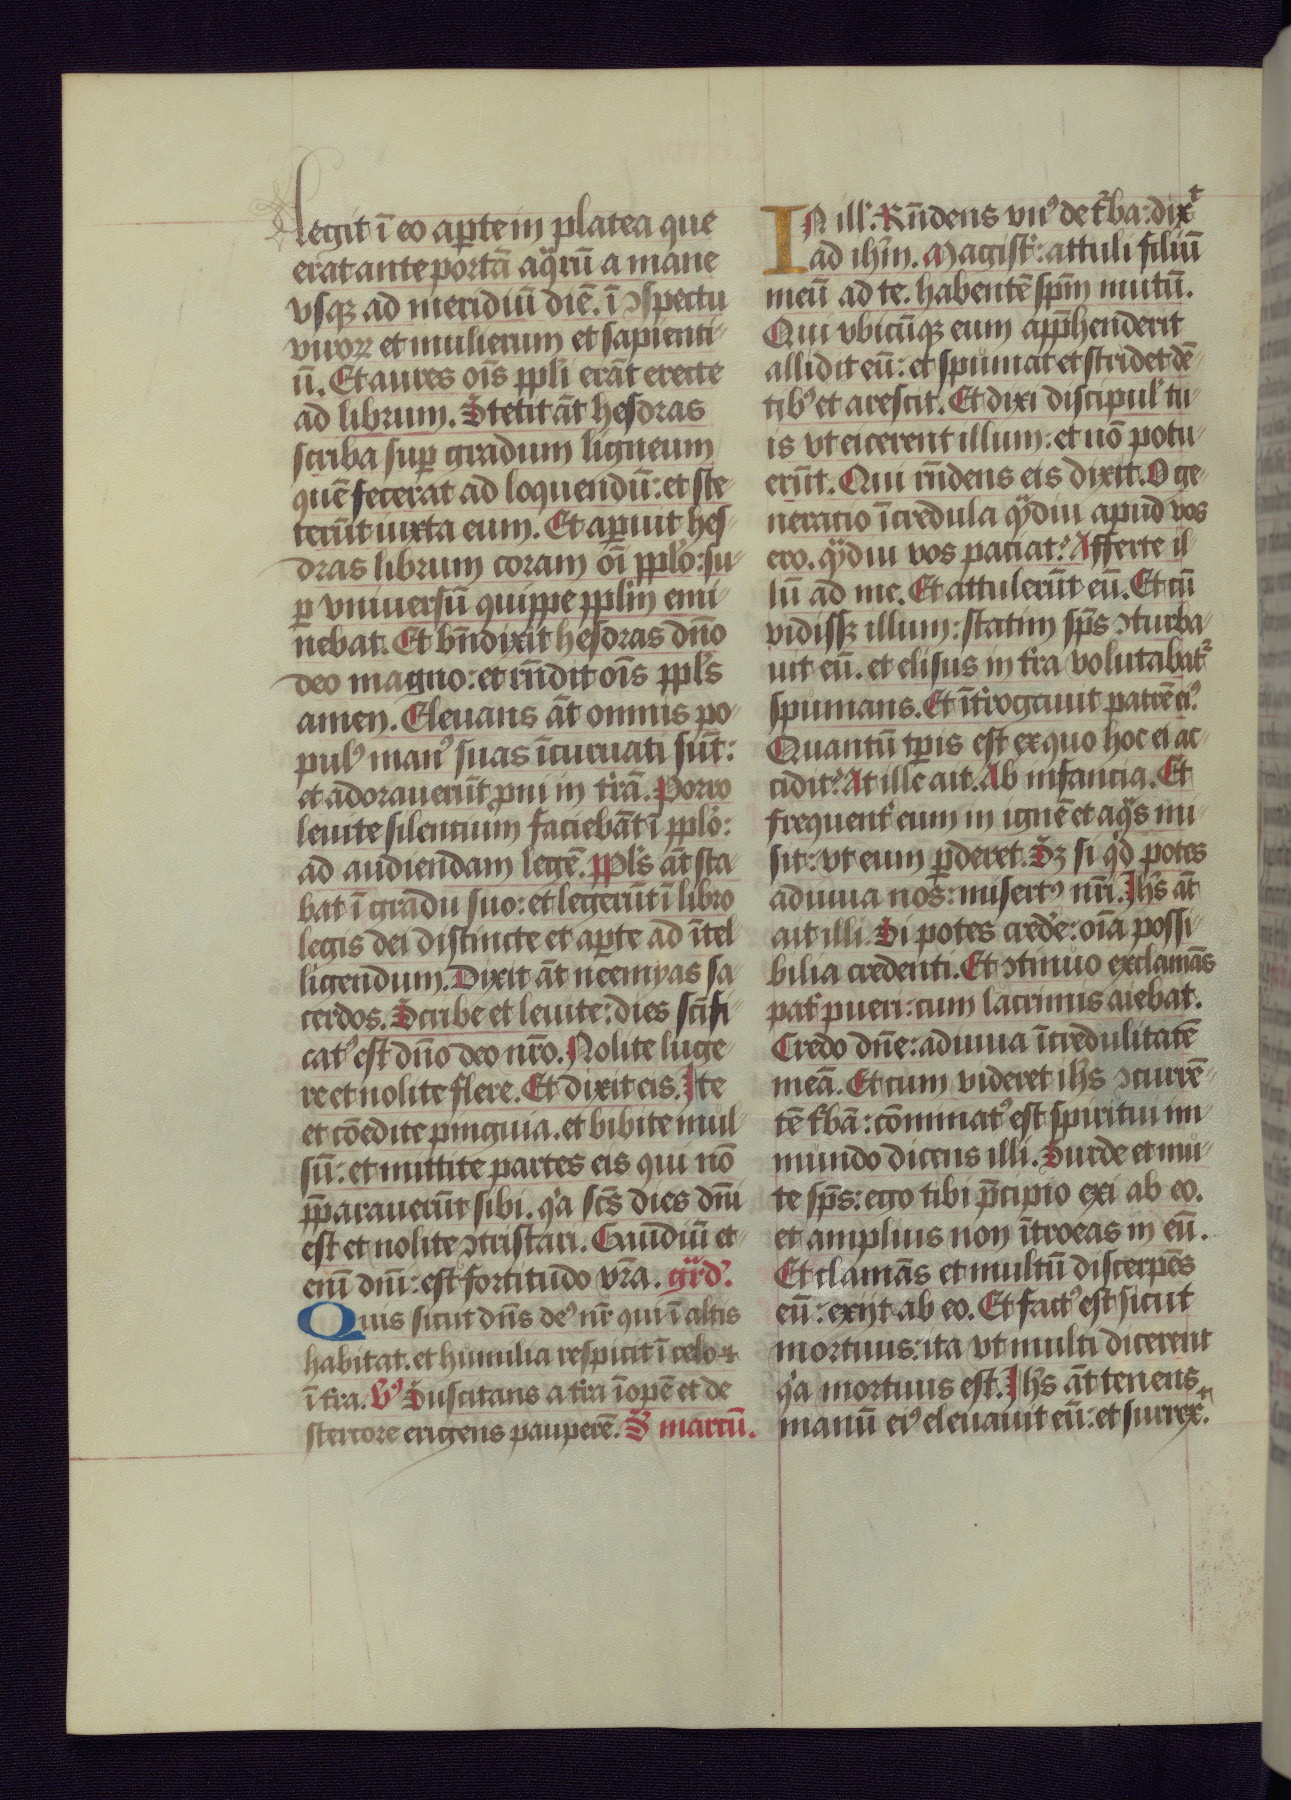 legit ī eo aꝑte in platea que
erat ante portā aq̈rū a mane
vsqꝫ ad meridiū diē. ī ꝯspectu
viroꝝ et mulierum et sapienti-
ū. Et aures oīs ppl̄i erāt erecte
ad librum. Stetit āt hesdras
scriba suꝑ gradum ligneum
quē fecerat ad loquendū: et ste-
terūt iuxta eum. Et aꝑuit hes-
dras librum coram oī pplo: su-
ꝑ vniuersū quippe pplm emi-
nebat. Et bn̄dixit hesdras dn̄o
deo magno: et rn̄dit oīs ppl̄s
amen. Eleuans āt omnis po-
pulꝰ manꝰ suas īcuruati sūt:
et adorauerūt ꝓni in tr̄ā. Porro
leuite silentium faciebāt ī pplo:
ad audiendam legē. Ppl̄s āt sta-
bat ī gradu suo: et legerūt ī libro
legis dei distincte et aꝑte ad ītel-
ligendum. Dixit āt neemyas sa-
cerdos. Scribe et leuite: dies scīfi-
catꝰ est dn̄o deo nr̄o. Nolite luge-
re et nolite flere. Et dixit eis. Ite
et cōedite pinguia. et bibite mul-
sū: et mittite partes eis qui nō
p̄parauerūt sibi. qͥa scs̄ dies dn̄i
est et nolite ꝯtristari. Gaudiū et-
enī dn̄i: est fortitudo vr̄a. gͣrdꝰ.
Quis sicut dn̄s deꝰ nr̄ qui ī altis
habitat. et humilia respicit ī celo ⁊
ī tr̄a. Vꝰ Suscitans a tr̄a īopē et de
stercore erigens pauperē. S̄ marcū.
IN ill'. Rn̄dens vnꝰ de tr̄ba: dixᵗ
ad ihm̄. Magistͬ: attuli filiū
meū ad te. habentē spm̄ mutū.
Qui vbicūqꝫ eum app̄henderit
allidit eū: et spumat et stridet dē-
tibꝰ et arescit. Et dixi discipul' tu-
is vt eicerent illum: et nō potu-
erūt. Qui rn̄dens eis dixit. O ge-
neratio īcredula qͣdiu apud vos
ero. qͣdiu vos patiar? Afferte il-
lū ad me. Et attulerūt eū. Et cū
vidissꝫ illum: statim sps̄ ꝯturba-
uit eū. et elisus in tr̄a volutabatᷣ
spumans. Et ītͬrogauit patrē eiꝰ.
Quantū tꝑis est ex quo hoc ei ac-
cidit? At ille ait. Ab infancia. Et
frequentͬ eum in ignē et aqͣs mi-
sit: vt eum ꝑderet. Sꝫ si qͥd potes
adiuua nos: misertꝰ nr̄i. Ihs̄ āt
ait illi. Si potes credͤe: oīa possi-
bilia credenti. Et ꝯtinuo exclamās
patͬ pueri: cum lacrimis aiebat.
Credo dn̄e: adiuua īcredulitatē
meā. Et cum videret ihs̄ ꝯcurrē-
tē tr̄bā: cōminatꝰ est spiritui im-
mundo dicens illi. Surde et mu-
te sps̄: ego tibi p̄cipio exi ab eo.
et amplius non ītroeas in eū.
Et clamās et multū discerpēs
eū: exijt ab eo. Et factꝰ est sicut
mortuus: ita vt multi dicerent
qͥa mortuus est. Ihs̄ āt tenens
manū eiꝰ eleuauit eū: et surrexͭ.